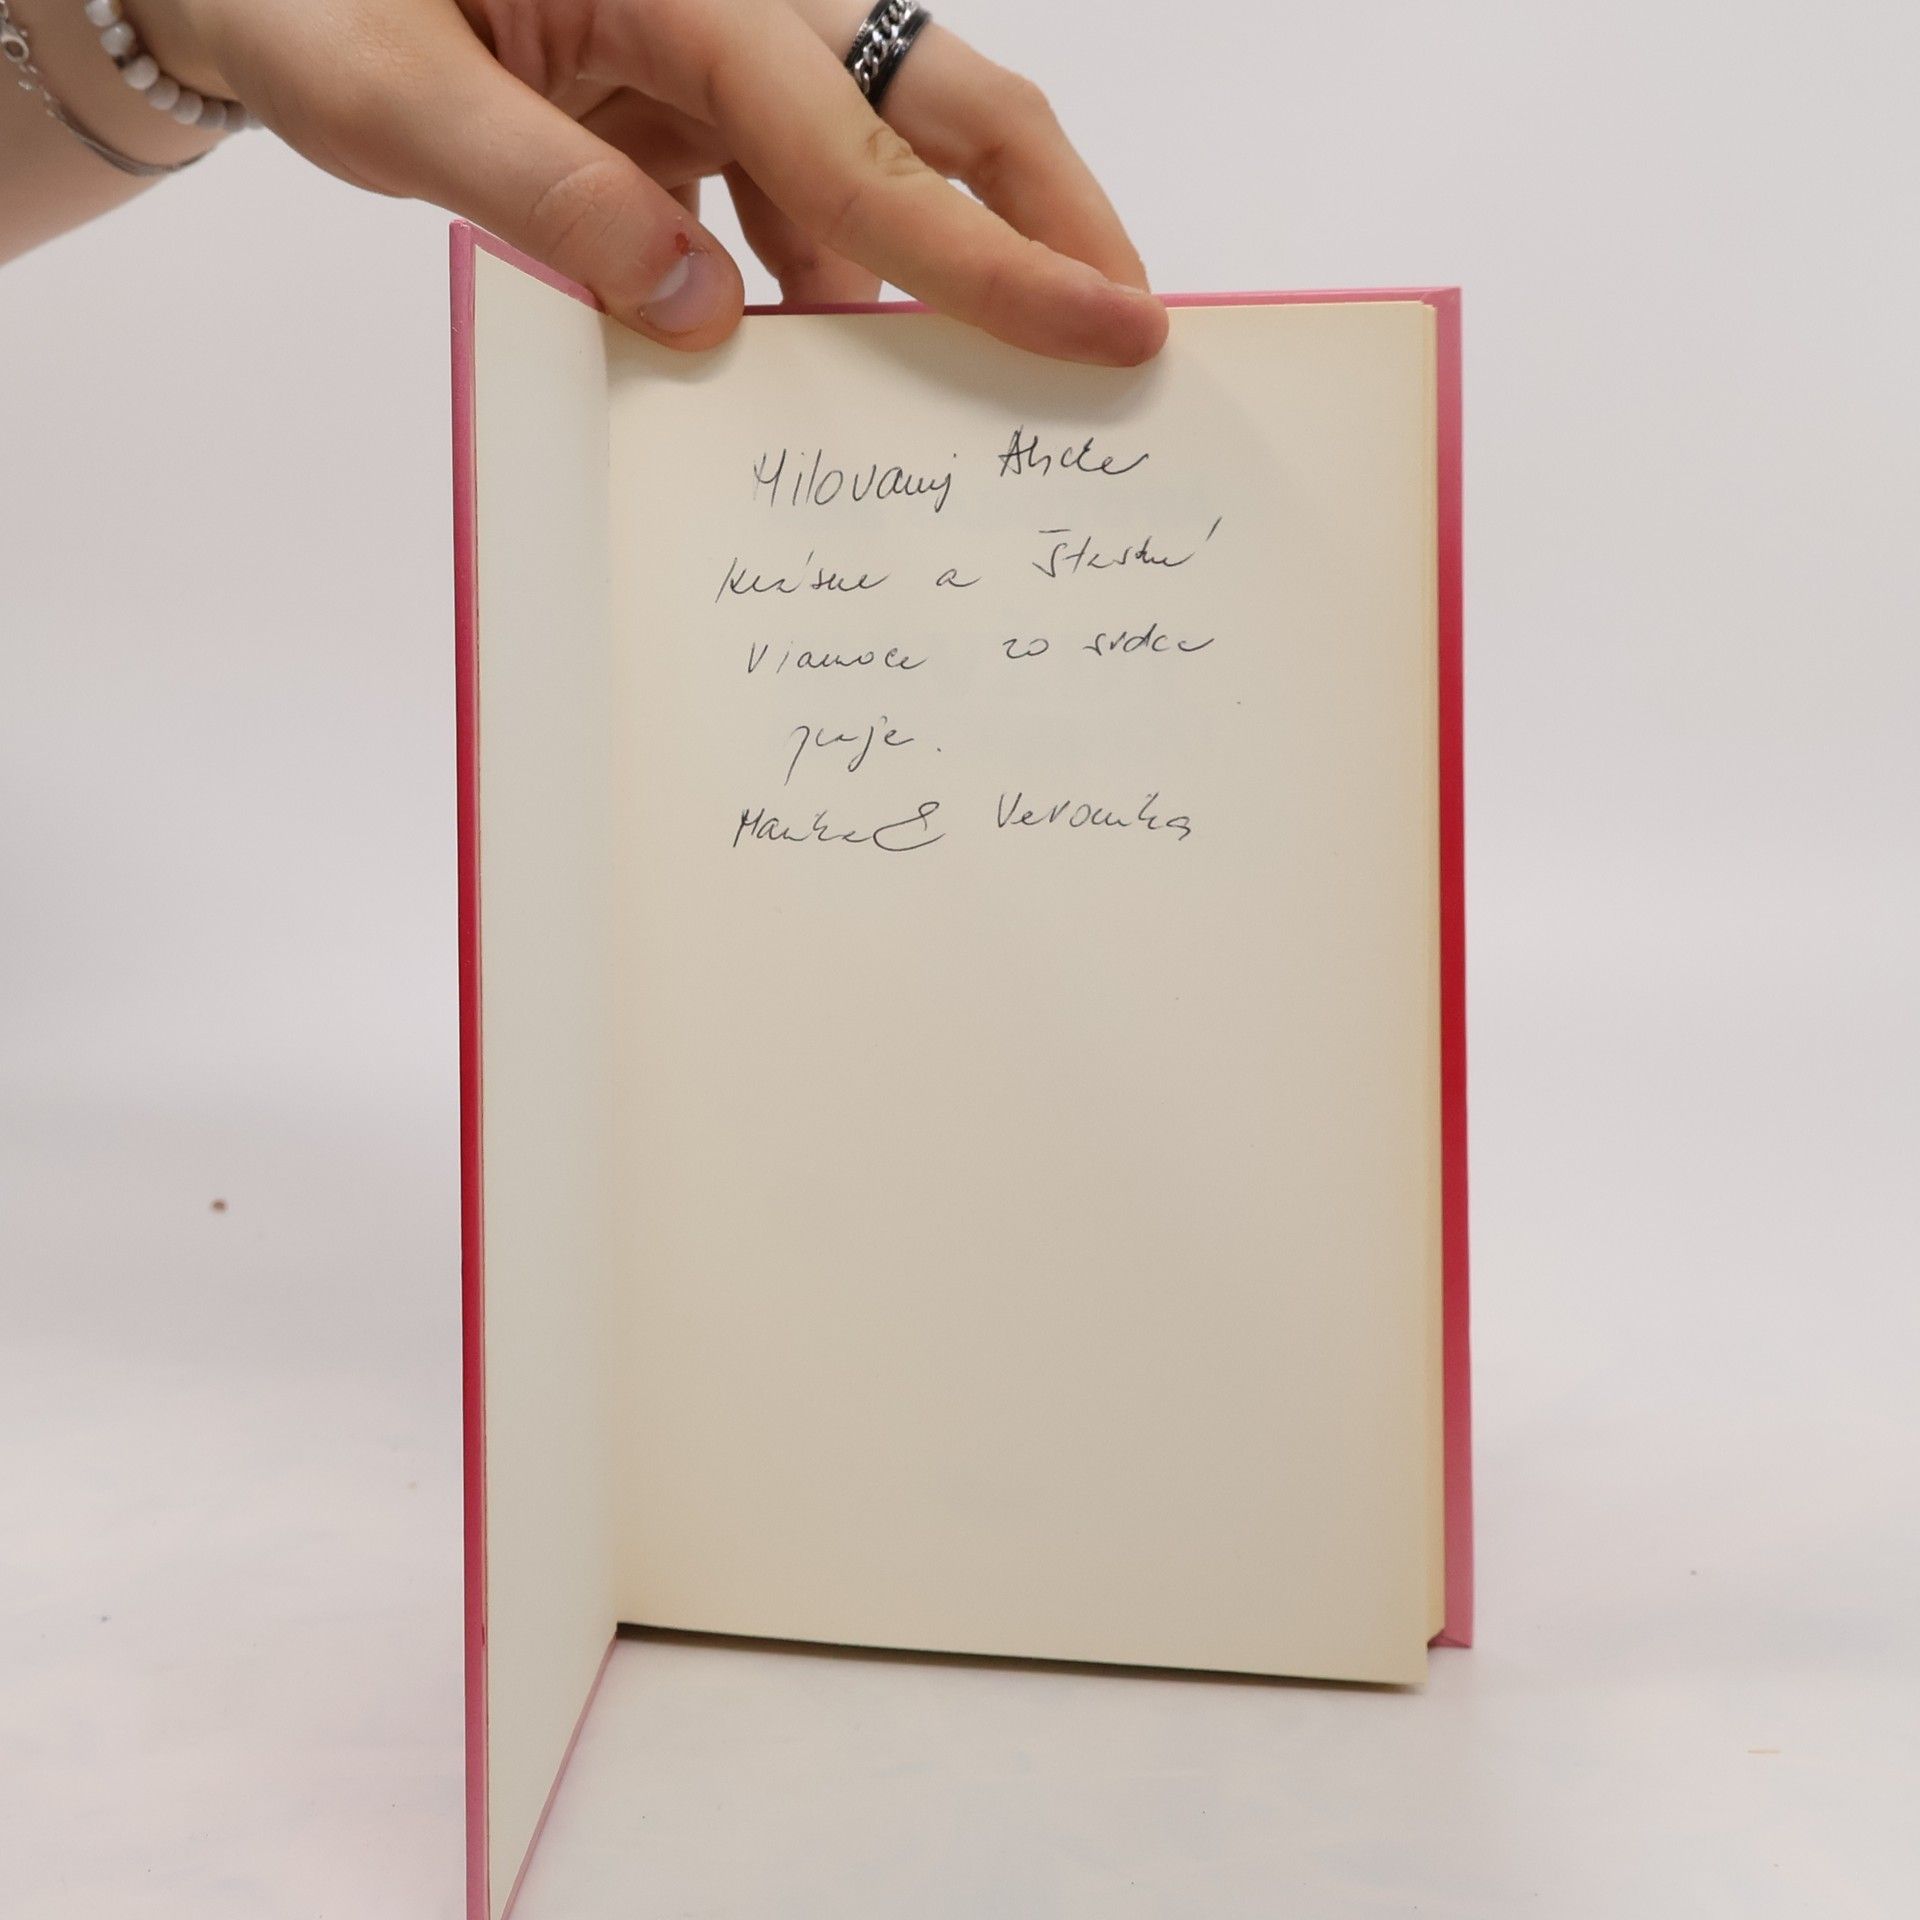 Milovanej Alicke
Krásne a Šťastné
Vianoce zo srdca
praje.
Mamka & Veronika